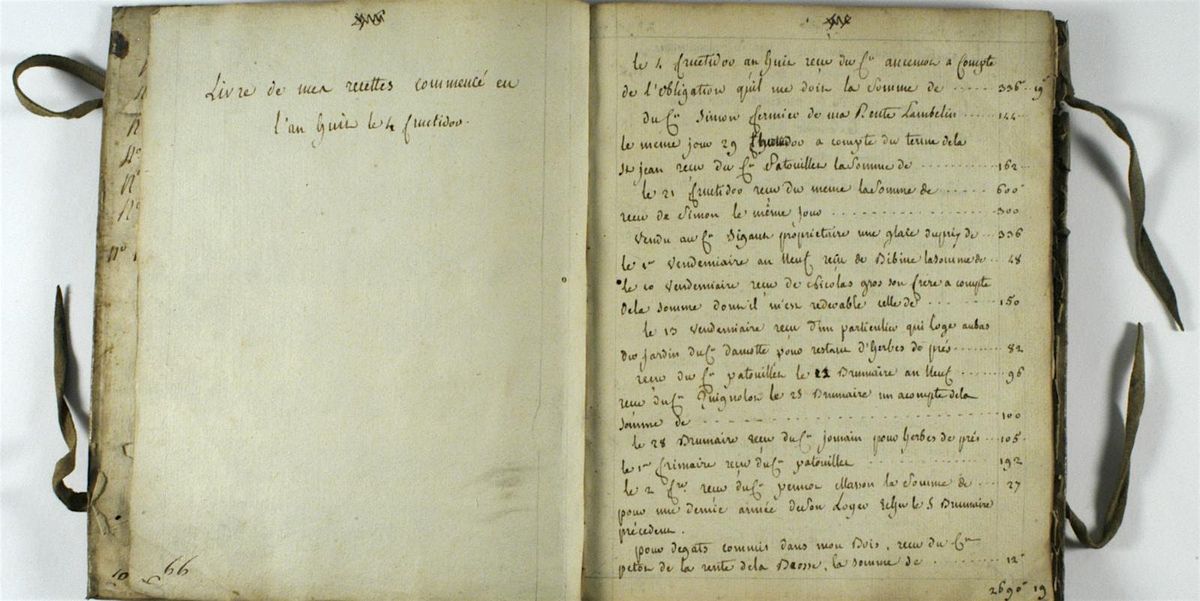 Livre de mes recettes commencé en
l'an huit le 4 fructidor.
66
le 4 fructidor an huit reçu du Cn ancemot a Compte
de l'obligation qu'il me doit la Somme de ...... 336 19
du Cn Simon fermier de ma Rente Lambelin ... 144
le meme jour 29 fructidor a compte du terme dela
St jean reçu du Cn Patouillet la Somme de ...... 162
le 21 fructidor reçu du meme la Somme de ...... 600
reçu de Simon le même jour ............ 300
Vendu au Cn Sigaut propriétaire une glace du prix de ... 336
le 1er Vendemiaire an neuf reçu de Bibine la somme de .. 48
le 10 Vendemiaire reçu de Nicolas gros son frere a compte
dela somme dont il m'est redevable celle de ...... 150
le 13 Vendemiaire reçu d'un particulier qui loge au bas
du jardin du Cn Damotte pour restant d'herbes de prés ....... 82
reçu du Cn patouillet le 22 Brumaire an neuf ..... 96
reçu du Cn Guignolot le 25 Brumaire un acompte dela
somme de ........................ 100
le 28 Brumaire reçu du Cn jomain pour herbes de prés ... 105
le 1er frimaire reçu du Cn patouillet ............ 192
le 2 fre reçu du Cn pernot Masson la Somme de ... 27
pour une demie année de son Loyer Echu le 5 Brumaire
précedent.
pour degats commis dans mon Bois, reçu du Cn
petot de la rente dela Brosse, la somme de ......... 12
2690 19